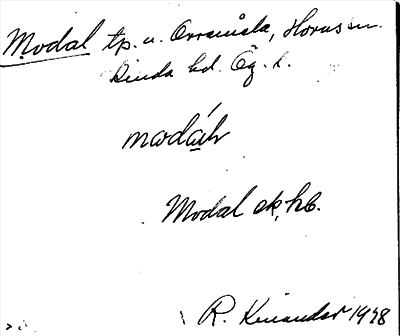 Modal tp. u. Orranäsla, Horns sn.
Kinda hd. Ög. l.
modáḷ
Modal ek, hb.
R. Kinander 1928